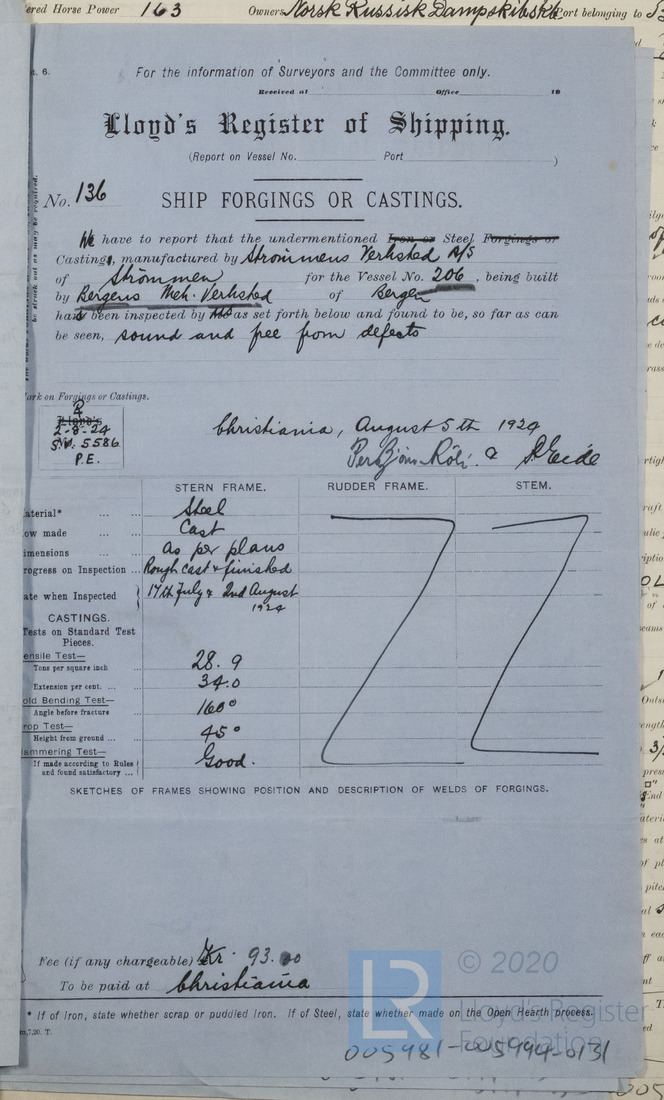 ered Horse Power 163 Owners Norsk Russisk Dampskibsk Port belonging to
t. 6.
For the information of Surveyors and the Committee only.
Received at Office 19
Lloyd's Register of Shipping.
(Report on Vessel No. Port )
No. 136 SHIP FORGINGS OR CASTINGS.
We have to report that the undermentioned Iron or Steel Forgings or
Castings, manufactured by Strömmens Verksted A/S
of Strömmen for the Vessel No. 206, being built
by Bergens Meh. Verksted of Bergen
have been inspected by as set forth below and found to be, so far as can
be seen, sound and free from defects
be struck out as may be required.
ark on Forgings or Castings.
Lloyd's
2-8-24
5586
P.E.
Christiania, August 5th 1924
&
STERN FRAME. RUDDER FRAME. STEM.
aterial* Steel
ow made Cast
imensions as per plans
rogress on Inspection Rough cast & finished
ate when Inspected 17th July & 2nd August
1924
CASTINGS.
Tests on Standard Test
Pieces.
ensile Test—
Tons per square inch 28.9
Extension per cent. 34.0
old Bending Test—
Angle before fracture 160°
rop Test—
Height from ground 45°
ammering Test—
If made according to Rules Good.
and found satisfactory
SKETCHES OF FRAMES SHOWING POSITION AND DESCRIPTION OF WELDS OF FORGINGS.
Fee (if any chargeable) Kr. 93.00
To be paid at Christiania
* If of Iron, state whether scrap or puddled Iron. If of Steel, state whether made on the Open Hearth process.
m,7,20. T.
LR © 2020
Lloyd's Register
Foundation
005981-005994-0131